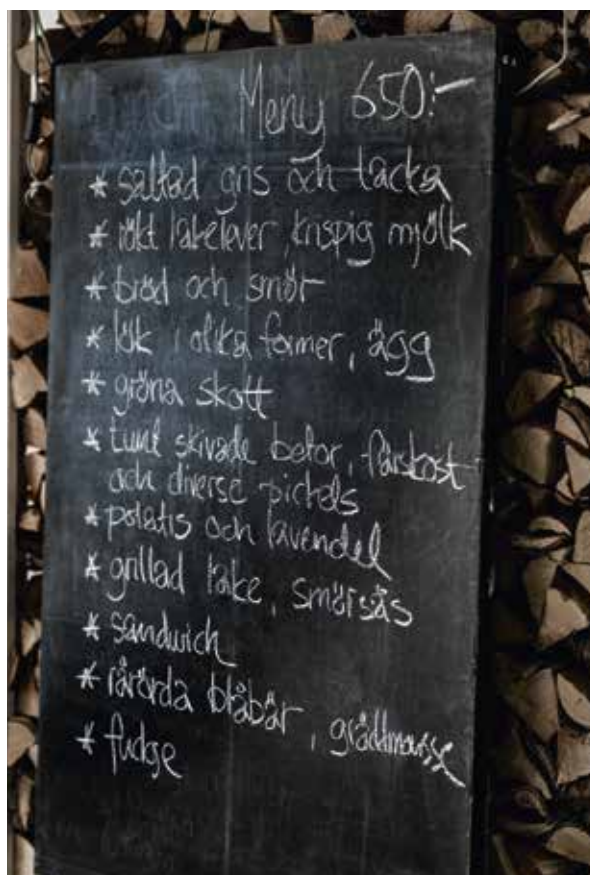 Meny 650:-
* saltad gris och tacka
* rökt lakelever, krispig mjölk
* bröd och smör
* lök i olika former, ägg
* gröna skott
* tunt skivade betor, färskost
och diverse pickels
* potatis och lavendel
* grillad lake, smörsås
* sandwich
* rårörda blåbär, gräddmousse
* fudge